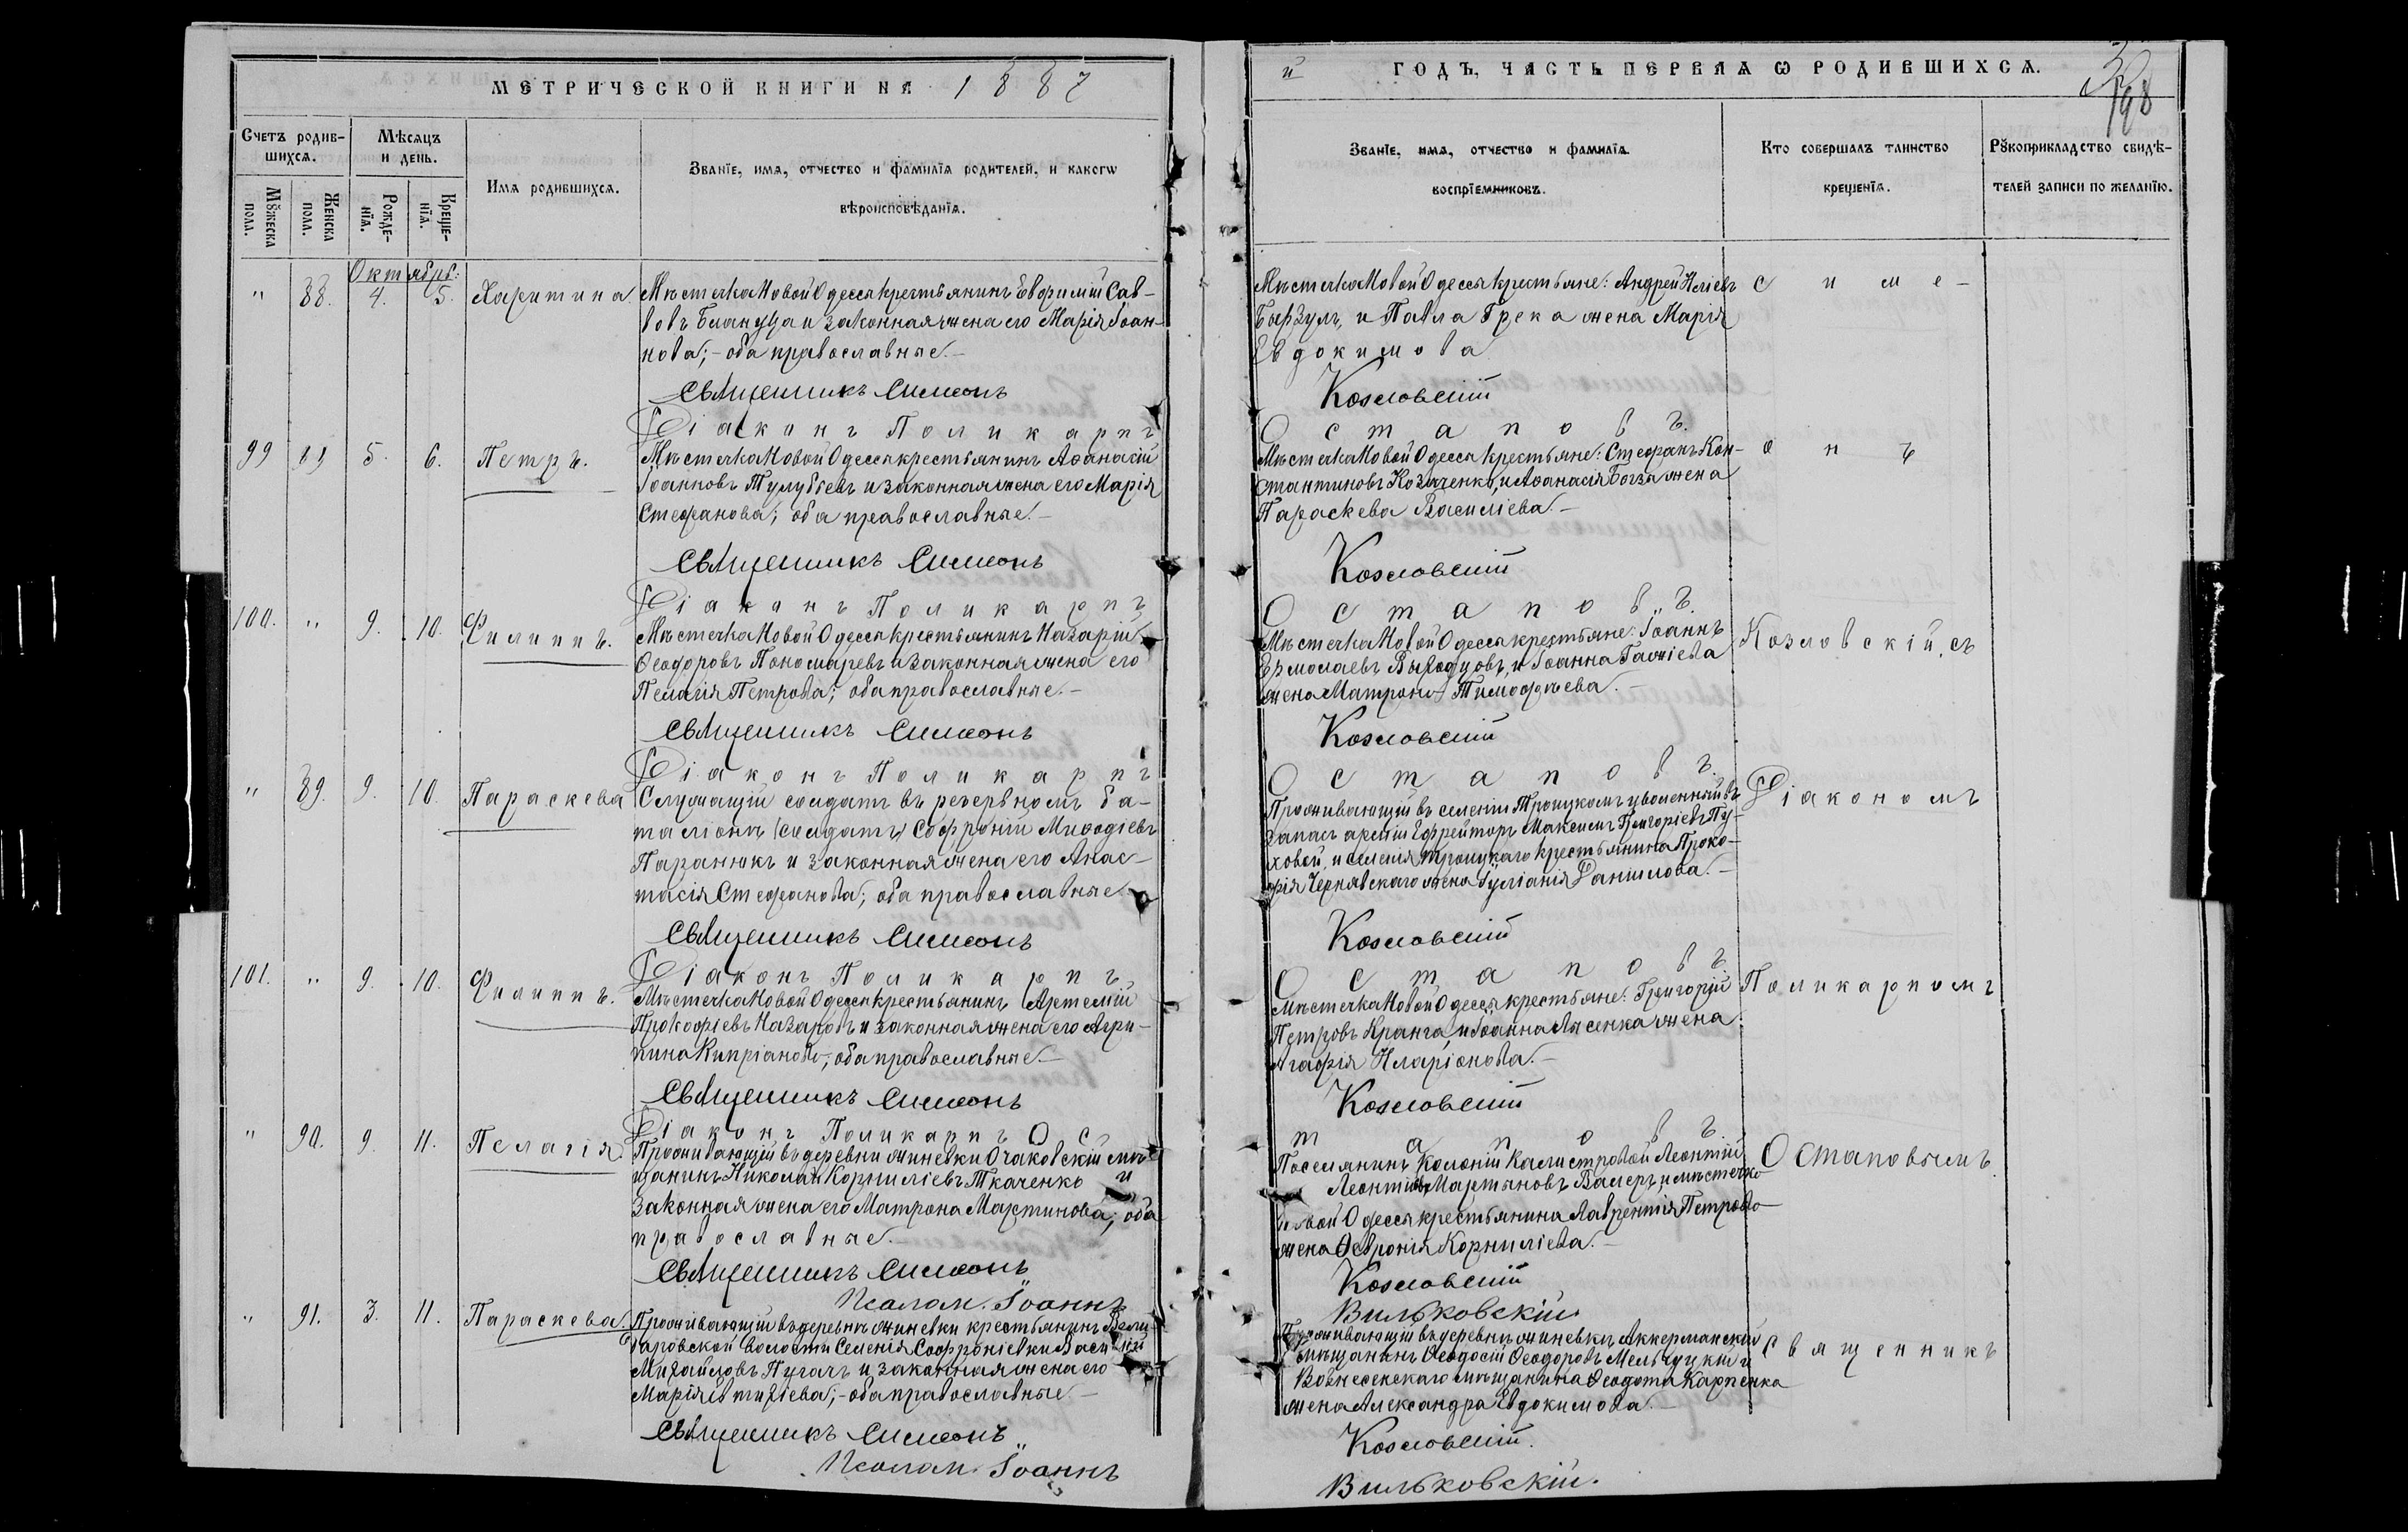 МЕТРИЧЕСКОЙ КНИГИ НА 1887
Счетъ родив-
шихся.
Мѣсяцъ
и день.
Имя родившихся.
Званіе, имя, отчество и фамилія родителей, и какогѡ
вѣроисповѣданія.
Мꙋжеска
пола.
Женска
пола.
Рожде-
нія.
Креще-
нія.
Октябрь.
" 88. 4. 5. Харитина.
Мѣстечка Новой Одессы крестьянинъ Евфимій Сав-
вовъ и законная жена его Марія Іоан-
нова; - оба православные. -
Священникъ Симеонъ
Діаконъ Поликарпъ
99 5. 6. Петръ.
Мѣстечка Новой Одессы крестьянинъ Аѳанасій
Іоанновъ Тулубьевъ и законная жена его Марія
Стефанова; оба православные. -
Священникъ Симеонъ
Діаконъ Поликарпъ
100. " 9. 10. Филиппъ.
Мѣстечка Новой Одессы крестьянинъ Назарій
Ѳеодоровъ Пономаревъ и законная жена его
Пелагія Петрова; оба православные. -
Священникъ Симеонъ
Діаконъ Поликарпъ
" 89. 9. 10. Параскева
Служащій солдатъ въ резервномъ ба-
таліонѣ (солдатъ) Софроній Меѳодіевъ
Паранюкъ и законная жена его Анас-
тасія Стефанова; оба православные
Священникъ Симеонъ
Діаконъ Поликарпъ.
101. " 9. 10. Филиппъ.
Мѣстечка Новой Одессы крестьянинъ Артемій
Прокофіевъ Назаровъ и законная жена его Агри-
пина Кипріанова; оба православные. -
Священникъ Симеонъ
Діаконъ Поликарпъ Ос
" 90. 9. 11. Пелагія.
Проживающій въ деревни Жиневки Очаковскій мѣ-
щанинъ Николай Корниліевъ Ткаченко и
законная жена его Матрона Мартинова; оба
православные. -
Священникъ Симеонъ
Псалом. Іоаннъ
" 91. 3. 11. Параскева.
Проживающій въ деревнѣ Жиневки крестьянинъ
волости Селенія Софроніевки Василій
Михайловъ Пугачъ и законная жена его
Марія Евтихіева; - оба православные -
Священникъ Симеонъ
Псалом. Іоаннъ
й ГОДЪ, ЧАСТЬ ПЕРВАЯ Ѡ РОДИВШИХСЯ.
198
Званіе, имя, отчество и фамилія
воспріемниковъ.
Кто совершалъ таинство
крещенія.
Рꙋкоприкладство свидѣ-
телей записи по желанію.
Мѣстечка Новой Одессы крестьяне: Андрей Иліевъ
Бырзулъ, и Павла Грека жена Марія
Евдокимова
Симе-
Козловскій
Остаповъ.
Мѣстечка Новой Одессы крестьяне: Стефанъ Кон-
стантиновъ Козаченко, и Аѳанасія жена
Параскева Василіева. -
онъ
Козловскій
Остаповъ.
Мѣстечка Новой Одессы крестьяне: Іоаннъ
Ермолаевъ Выходцовъ, и Іоанна
жена Матрона Тимофѣева. -
Козловскій, съ
Козловскій
Остаповъ.
Проживающій въ селеніи Троицкомъ уволенный въ
запасъ арміи Ефрейторъ Максимъ Григоріевъ Пу-
ховой, и селенія Троицкаго крестьянина Проко-
фія Чернявскаго жена Іуліанія Даніилова. -
Діакономъ
Козловскій
Остаповъ
Мѣстечка Новой Одессы крестьяне: Григорій
Петровъ Кранга, и Іоанна Лысенка жена
Агафія Иларіонова. -
Поликарпомъ
Козловскій
таповъ.
Поселянинъ Колоніи Калистровой Леонтій
Леонтій Мартыновъ Валеръ, и мѣстечка
Новой Одессы крестьянина Лаврентія Петрова
жена Ѳевронія Корниліева. -
Остаповымъ
Козловскій
Вильковскій.
Проживающій въ деревнѣ Жиневкѣ Аккерманскій
мѣщанинъ Ѳеодосій Ѳеодоровъ Мельчуцкій и
Вознесенскаго мѣщанина Ѳеодота Карпенка
жена Александра Евдокимова. -
Священникъ
Козловскій.
Вильковскій.